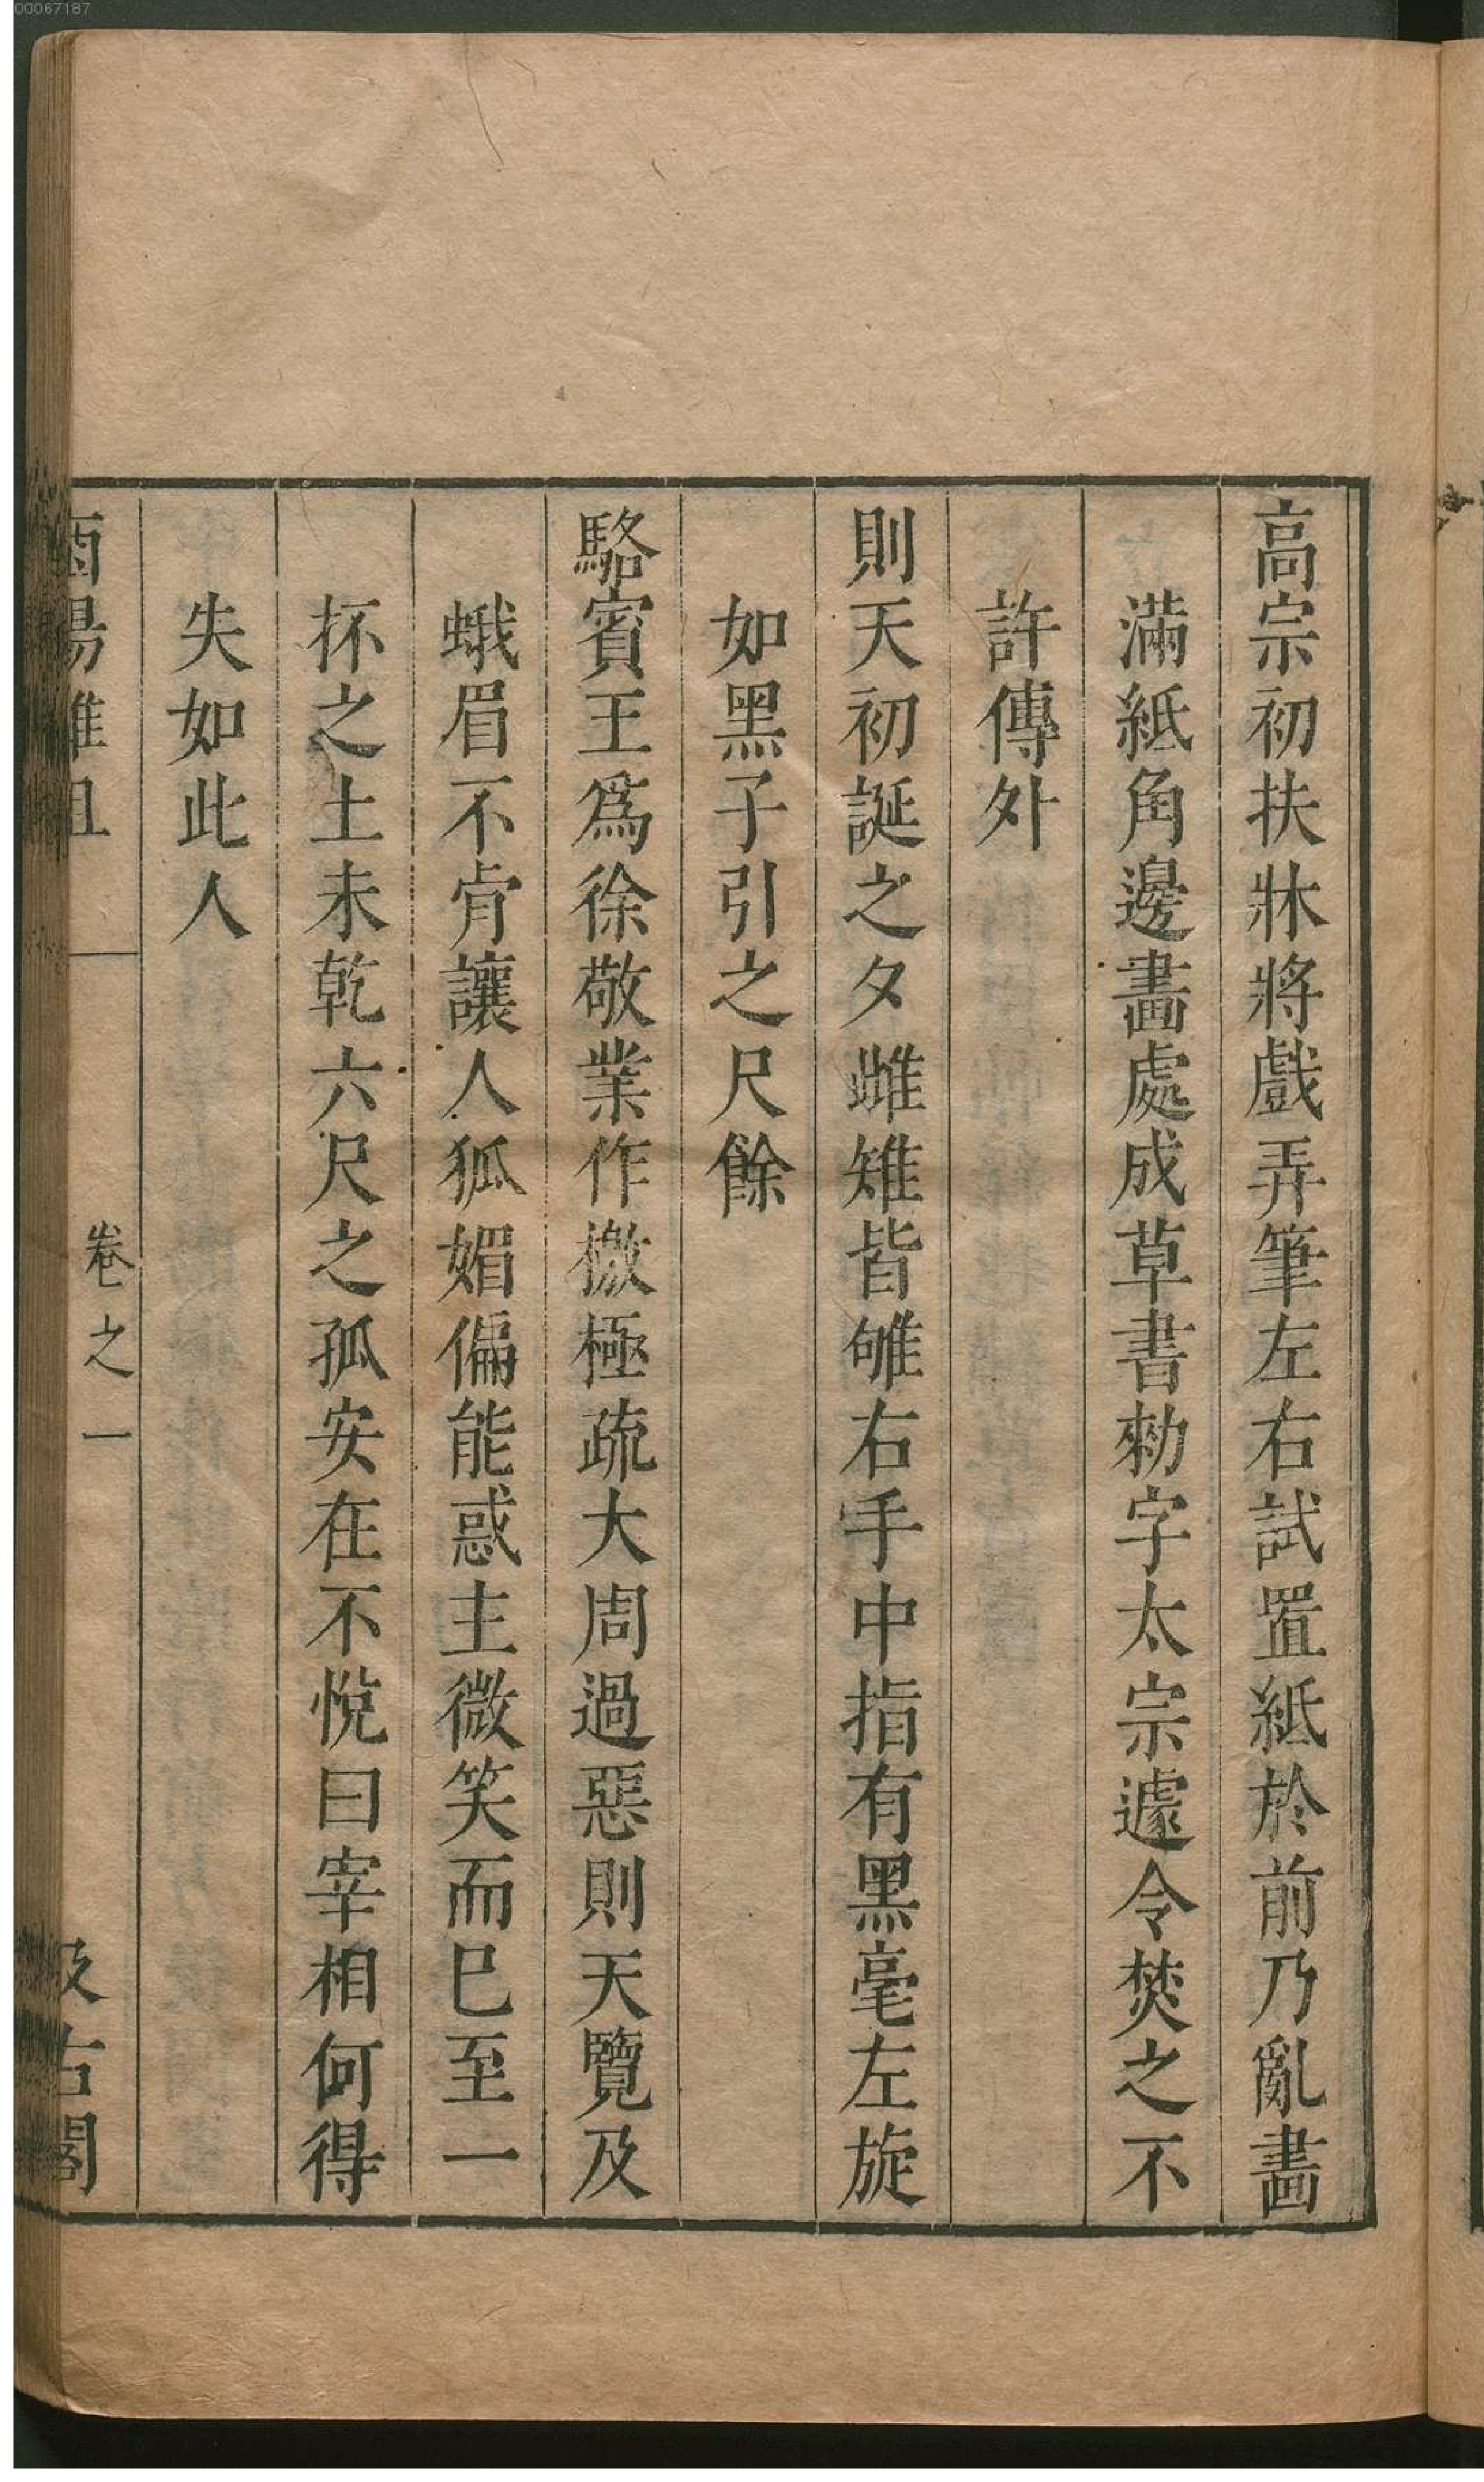 00067187
高宗初扶牀將戲弄筆左右試置紙於前乃亂畫
滿紙角邊畫處成草書勑字太宗遽令焚之不
許傳外
則天初誕之夕雌雉皆雊右手中指有黑毫左旋
如黑子引之尺餘
駱賓王爲徐敬業作檄極疏大周過惡則天覽及
蛾眉不肯讓人狐媚偏能惑主微笑而巳至一
抔之土未乾六尺之孤安在不悅曰宰相何得
失如此人
酉陽雜俎 卷之一 汲古閣